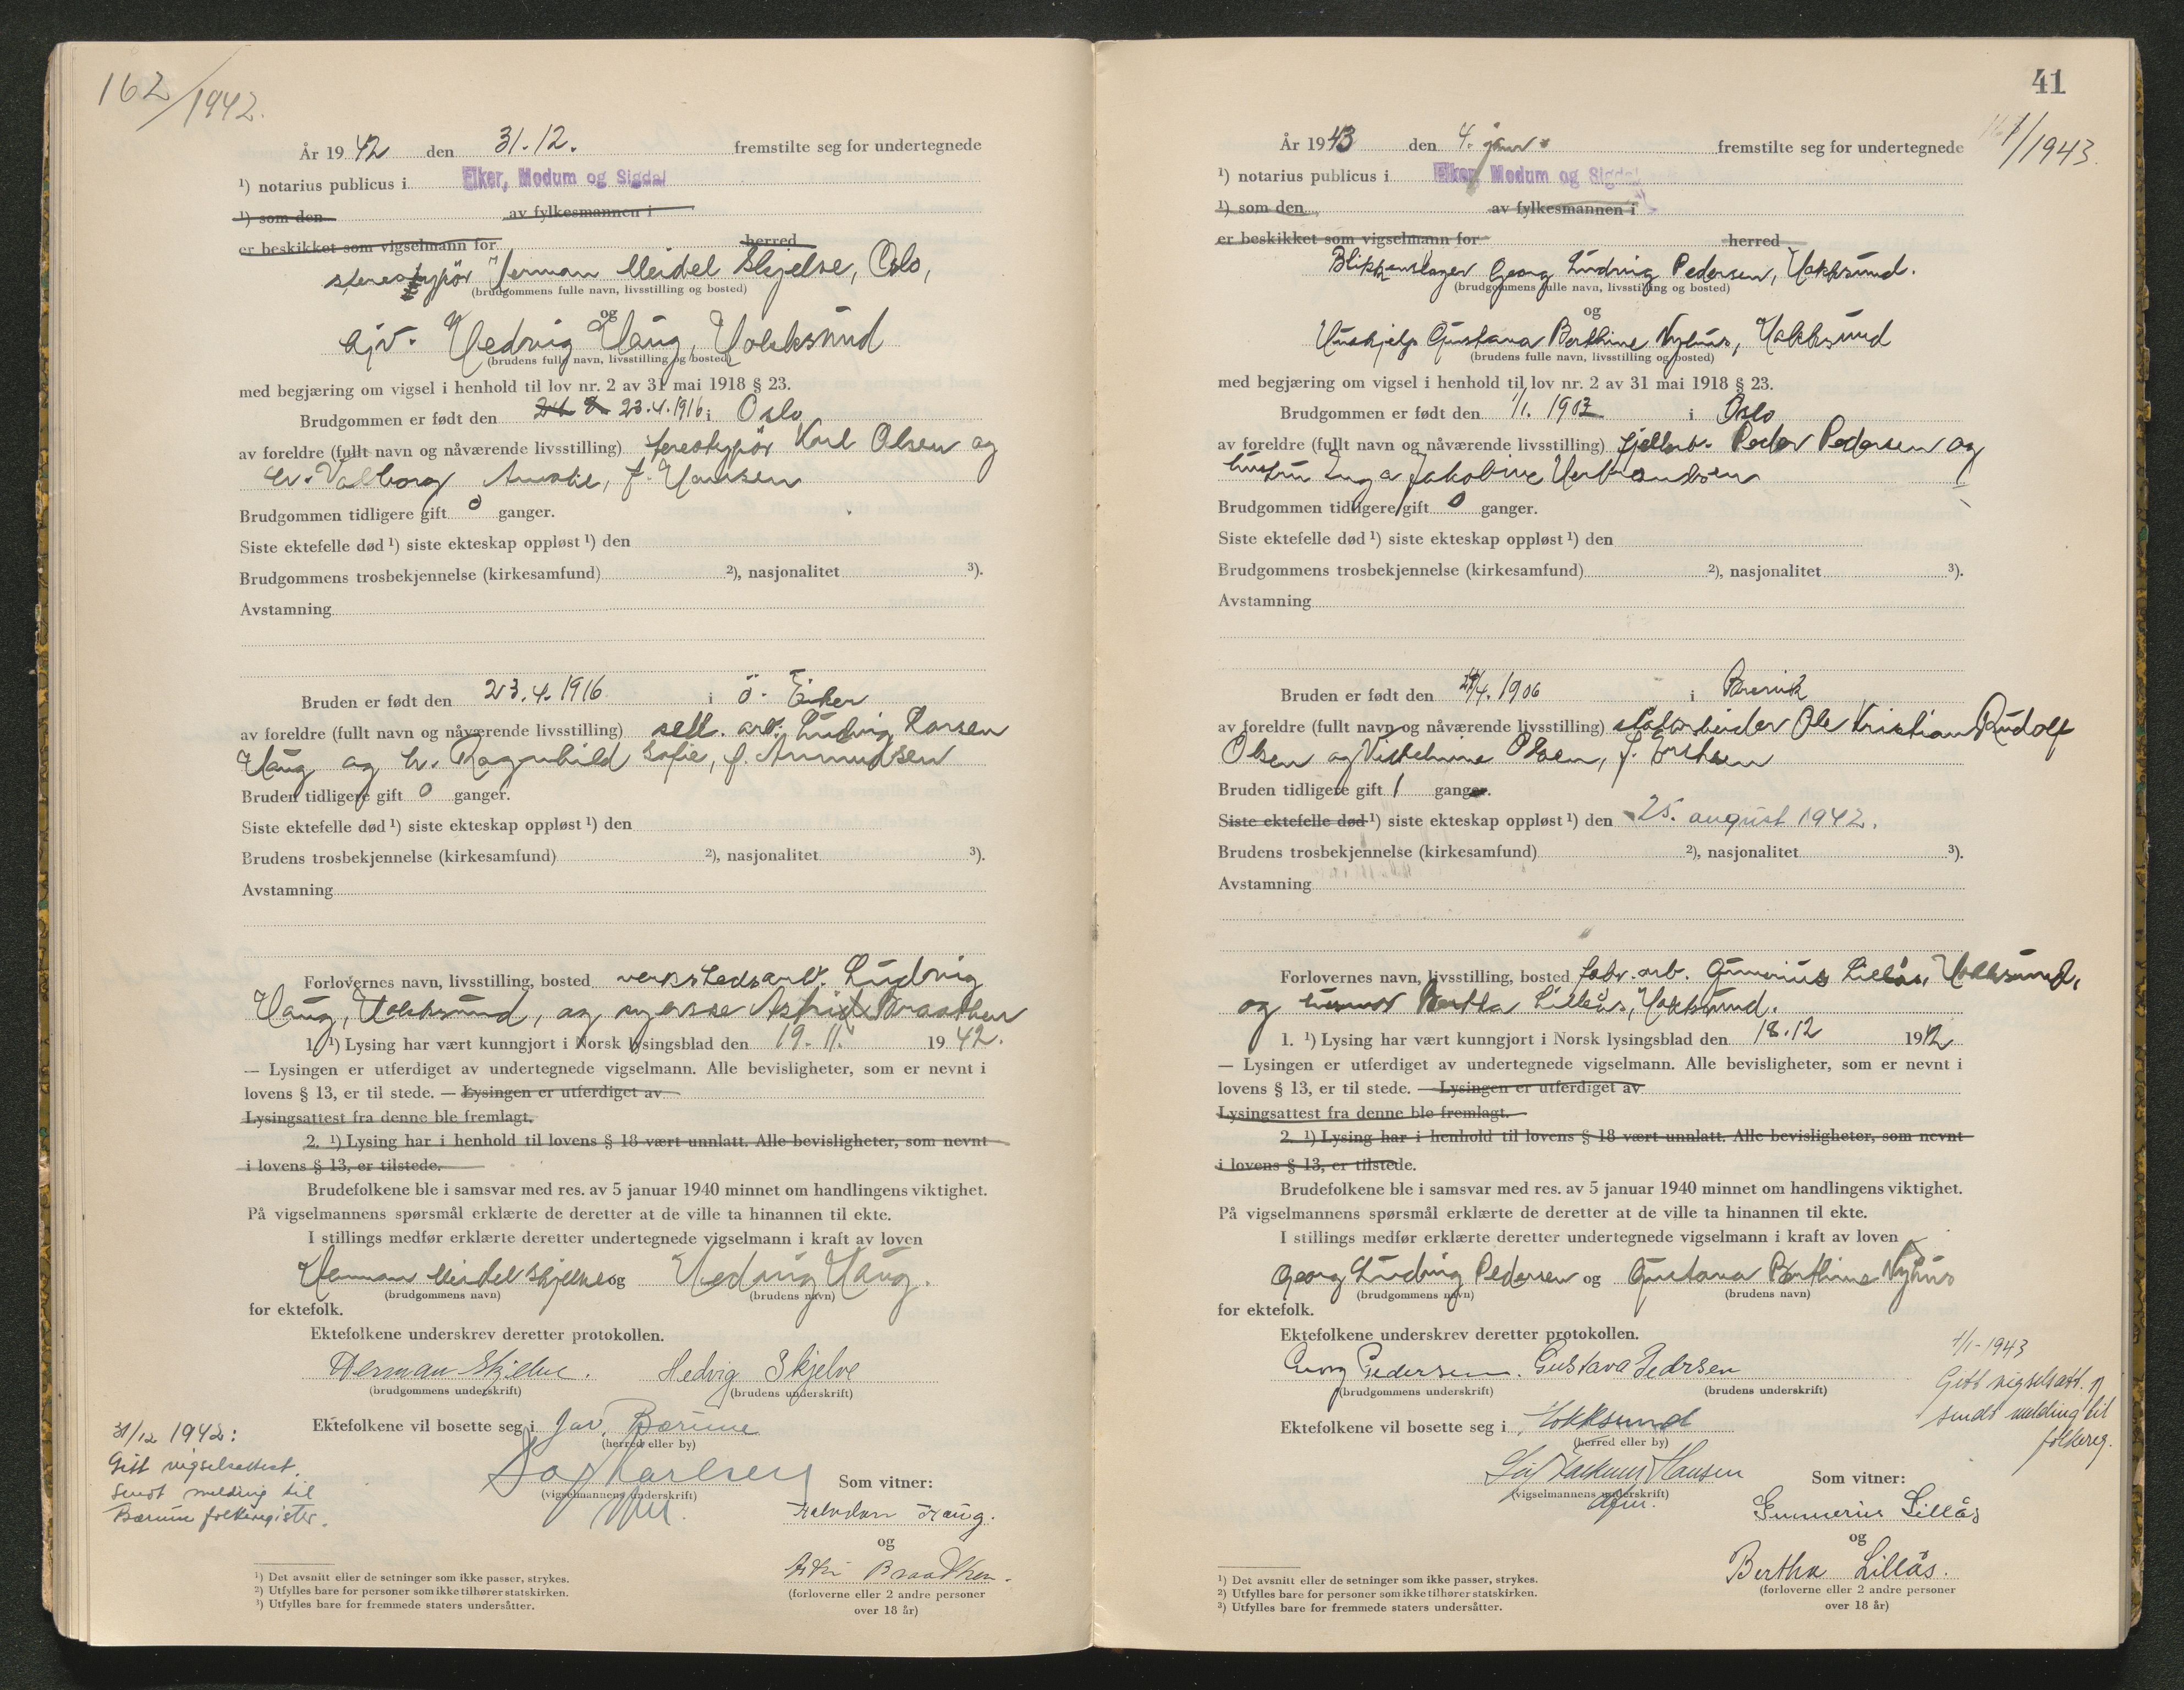 162/1942.
År 1942 den 31.12. fremstilte seg for undertegnede
¹) notarius publicus i Eiker, Modum og Sigdal
¹) som den av fylkesmannen i
er beskikket som vigselmann for herred
stereotypør Herman Meidel Skjelve, Oslo,
(brudgommens fulle navn, livsstilling og bosted)
og
Hedvig Haug, Hokksund
(brudens fulle navn, livsstilling og bosted)
med begjæring om vigsel i henhold til lov nr. 2 av 31 mai 1918 § 23.
Brudgommen er født den 23.4.1916 i Oslo
av foreldre (fullt navn og nåværende livsstilling) stereotypør Karl Olsen og
h. Valborg Amalie, f. Hansen
Brudgommen tidligere gift 0 ganger.
Siste ektefelle død ¹) siste ekteskap oppløst ¹) den
Brudgommens trosbekjennelse (kirkesamfund) ²), nasjonalitet ³).
Avstamning
Bruden er født den 23.4.1916 i Ö. Eiker
av foreldre (fullt navn og nåværende livsstilling) sell. arb. Ludvig Larsen
Haug og h. Ragnhild Sofie, f. Amundsen
Bruden tidligere gift 0 ganger.
Siste ektefelle død ¹) siste ekteskap oppløst ¹) den
Brudens trosbekjennelse (kirkesamfund) ²), nasjonalitet ³).
Avstamning
Forlovernes navn, livsstilling, bosted verkstedsarb. Ludvig
Haug, Hokksund, og syerske Astrid Braathen
1. ¹) Lysing har vært kunngjort i Norsk lysingsblad den 19.11. 1942.
— Lysingen er utferdiget av undertegnede vigselmann. Alle bevisligheter, som er nevnt i
lovens § 13, er til stede. — Lysingen er utferdiget av
Lysingsattest fra denne ble fremlagt.
2. ¹) Lysing har i henhold til lovens § 18 vært unnlatt. Alle bevisligheter, som nevnt
i lovens § 13, er tilstede.
Brudefolkene ble i samsvar med res. av 5 januar 1940 minnet om handlingens viktighet.
På vigselmannens spørsmål erklærte de deretter at de ville ta hinannen til ekte.
I stillings medfør erklærte deretter undertegnede vigselmann i kraft av loven
Herman Meidel Skjelve og Hedvig Haug.
(brudgommens navn) (brudens navn)
for ektefolk.
Ektefolkene underskrev deretter protokollen.
Herman Skjelve. Hedvig Skjelve
(brudgommens underskrift) (brudens underskrift)
Ektefolkene vil bosette seg i Jar, Bærum
(herred eller by)
31/12 1942:
Gitt vigselsattest.
Sendt melding til
Bærum folkeregister.
Som vitner:
(vigselmannens underskrift)
Halvdan Haug.
og
Braathen.
(forloverne eller 2 andre personer
over 18 år)
¹) Det avsnitt eller de setninger som ikke passer, strykes.
²) Utfylles bare for personer som ikke tilhører statskirken.
³) Utfylles bare for fremmede staters undersåtter.
41
1/1943
År 1943 den 4. januar fremstilte seg for undertegnede
¹) notarius publicus i Eiker, Modum og Sigdal
¹) som den av fylkesmannen i
er beskikket som vigselmann for herred
Blikkenslager Georg Ludvig Pedersen, Hokksund.
(brudgommens fulle navn, livsstilling og bosted)
og
Hushjelp Gustava Berthine Nyhus, Hokksund
(brudens fulle navn, livsstilling og bosted)
med begjæring om vigsel i henhold til lov nr. 2 av 31 mai 1918 § 23.
Brudgommen er født den 1/1. 1903 i Oslo
av foreldre (fullt navn og nåværende livsstilling) fjellarb. Peder Pedersen og
hustru Inga Jakobine Herbrandsen
Brudgommen tidligere gift 0 ganger.
Siste ektefelle død ¹) siste ekteskap oppløst ¹) den
Brudgommens trosbekjennelse (kirkesamfund) ²), nasjonalitet ³).
Avstamning
Bruden er født den /4. 1906 i Brevik
av foreldre (fullt navn og nåværende livsstilling) Ole Kristian Rudolf
Olsen og Vilhelmine Olsen, f.
Bruden tidligere gift 1 ganger.
Siste ektefelle død ¹) siste ekteskap oppløst ¹) den 25. august 1942.
Brudens trosbekjennelse (kirkesamfund) ²), nasjonalitet ³).
Avstamning
Forlovernes navn, livsstilling, bosted fabr. arb. Gunnerius Lillås, Hokksund,
og husmor Bertha Lillås, Hokksund.
1. ¹) Lysing har vært kunngjort i Norsk lysingsblad den 18.12 1942
— Lysingen er utferdiget av undertegnede vigselmann. Alle bevisligheter, som er nevnt i
lovens § 13, er til stede. — Lysingen er utferdiget av
Lysingsattest fra denne ble fremlagt.
2. ¹) Lysing har i henhold til lovens § 18 vært unnlatt. Alle bevisligheter, som nevnt
i lovens § 13, er tilstede.
Brudefolkene ble i samsvar med res. av 5 januar 1940 minnet om handlingens viktighet.
På vigselmannens spørsmål erklærte de deretter at de ville ta hinannen til ekte.
I stillings medfør erklærte deretter undertegnede vigselmann i kraft av loven
Georg Ludvig Pedersen og Gustava Berthine Nyhus
(brudgommens navn) (brudens navn)
for ektefolk.
Ektefolkene underskrev deretter protokollen.
Georg Pedersen. Gustava Pedrsen
(brudgommens underskrift) (brudens underskrift)
Ektefolkene vil bosette seg i Hokksund
(herred eller by)
4/1-1943
Gitt vigselsatt. og
sendt melding til
folkereg.
Hansen
Som vitner:
(vigselmannens underskrift)
Gunnerius Lillås
og
Bertha Lillås.
(forloverne eller 2 andre personer
over 18 år)
¹) Det avsnitt eller de setninger som ikke passer, strykes.
²) Utfylles bare for personer som ikke tilhører statskirken.
³) Utfylles bare for fremmede staters undersåtter.